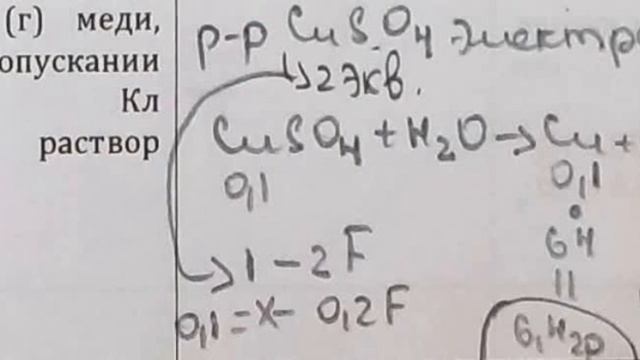 (г) меди,
опускании
Кл
раствор
р-р CuSO4 электр
2 экв.
CuSO4 + H2O → Cu +
0,1 0,1
•
64
||
1 – 2F
0,1 = x – 0,2F